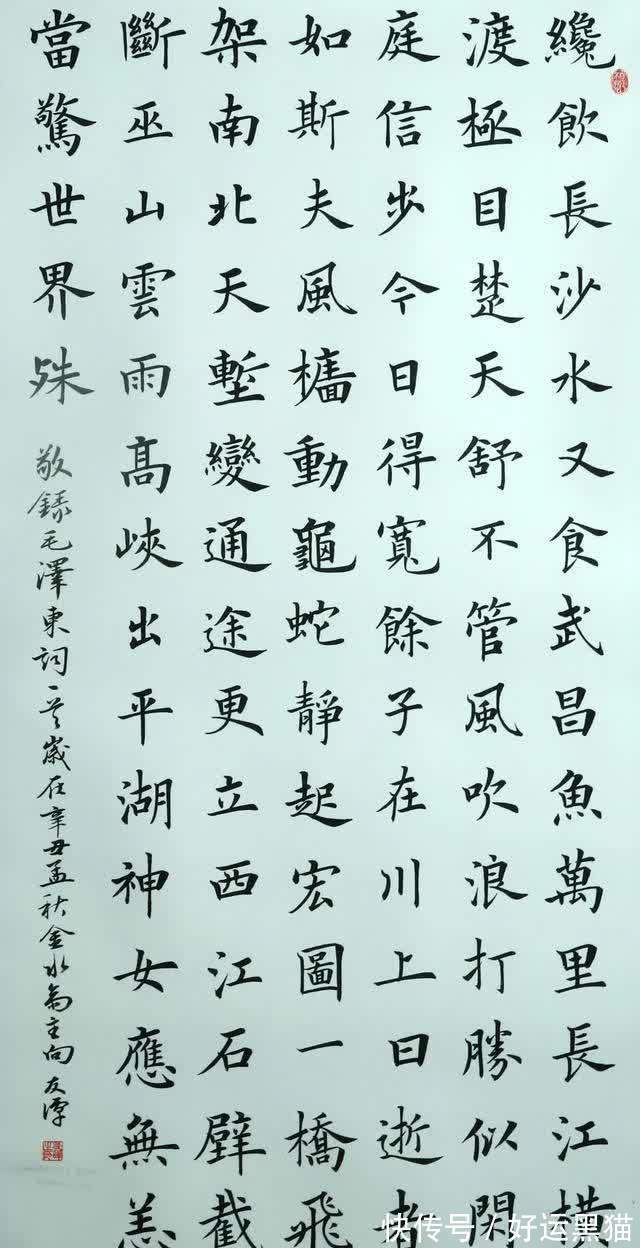 纔飲長沙水又食武昌魚萬里長江橫
渡極目楚天舒不管風吹浪打勝似閑
庭信步今日得寬餘子在川上曰逝者
如斯夫風檣動龜蛇靜起宏圖一橋飛
架南北天塹變通途更立西江石壁截
斷巫山雲雨高峽出平湖神女應無恙
當驚世界殊
敬錄毛澤東詞一首歲在辛丑孟秋金水齋主向友
快传号/好运黑猫